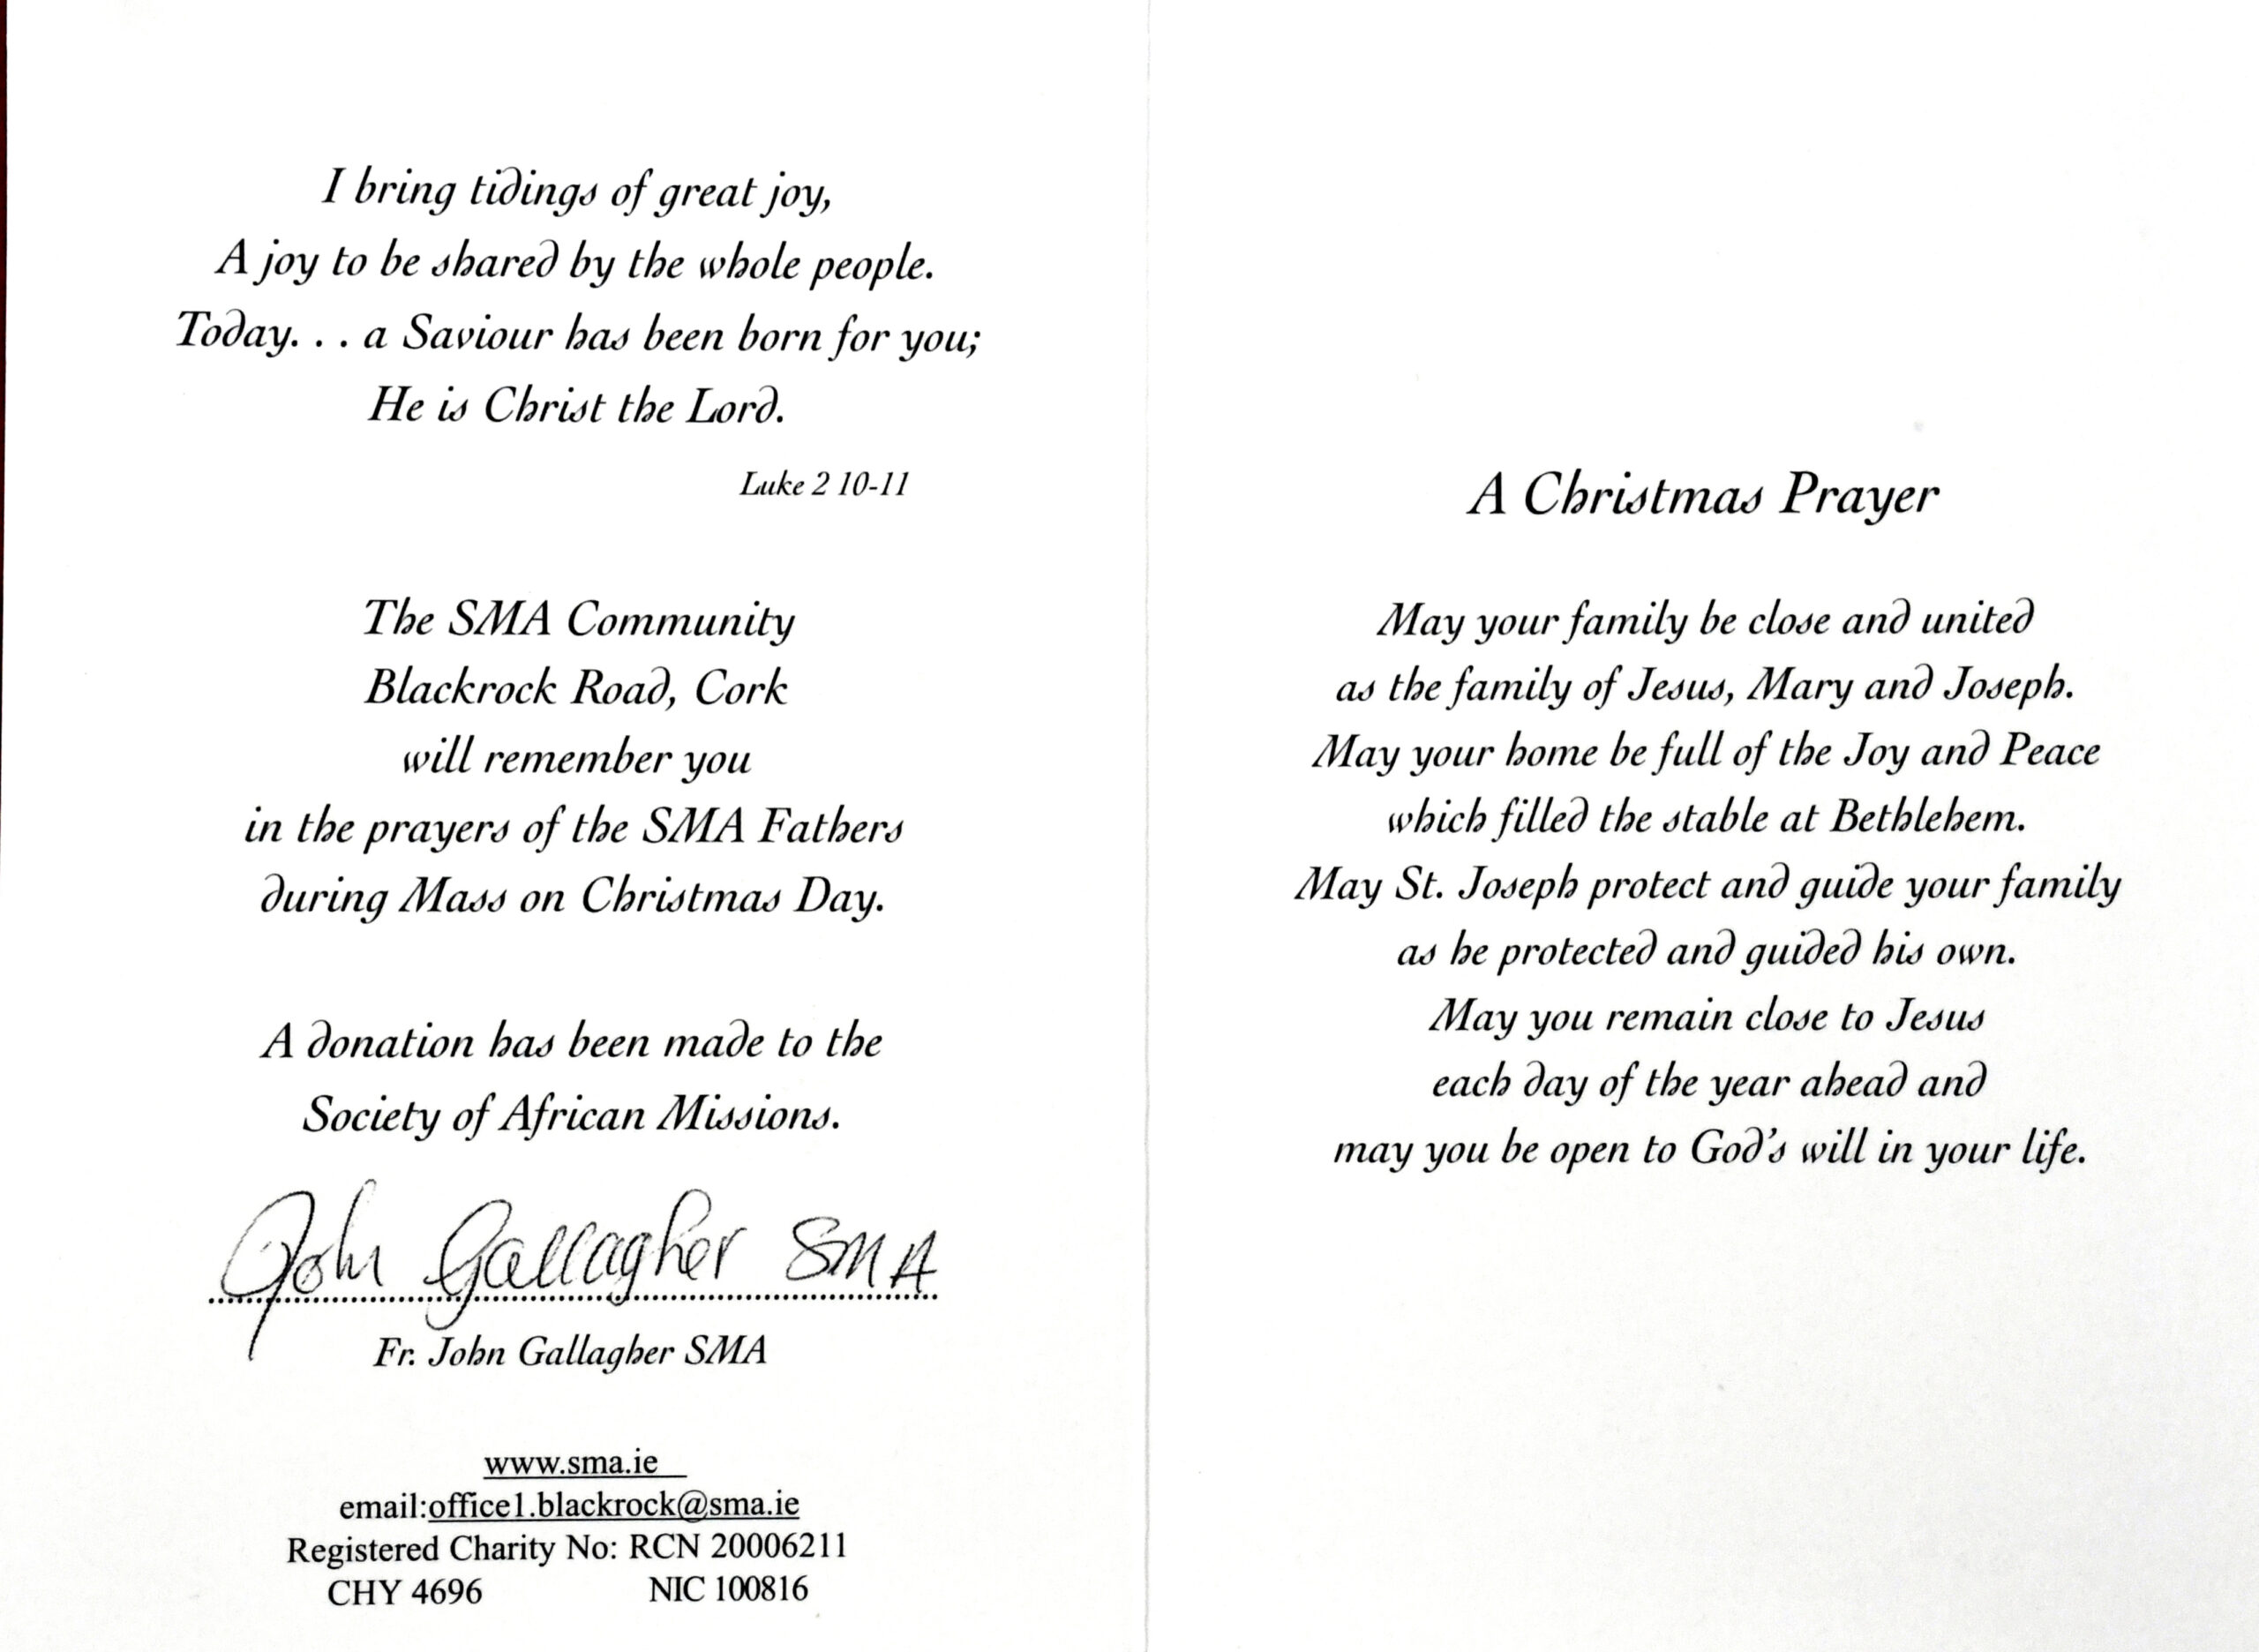 I bring tidings of great joy,
A joy to be shared by the whole people.
Today. . . a Saviour has been born for you;
He is Christ the Lord.
Luke 2 10-11
The SMA Community
Blackrock Road, Cork
will remember you
in the prayers of the SMA Fathers
during Mass on Christmas Day.
A donation has been made to the
Society of African Missions.
John Gallagher SMA
Fr. John Gallagher SMA
www.sma.ie
email:office1.blackrock@sma.ie
Registered Charity No: RCN 20006211
CHY 4696 NIC 100816
A Christmas Prayer
May your family be close and united
as the family of Jesus, Mary and Joseph.
May your home be full of the Joy and Peace
which filled the stable at Bethlehem.
May St. Joseph protect and guide your family
as he protected and guided his own.
May you remain close to Jesus
each day of the year ahead and
may you be open to God's will in your life.